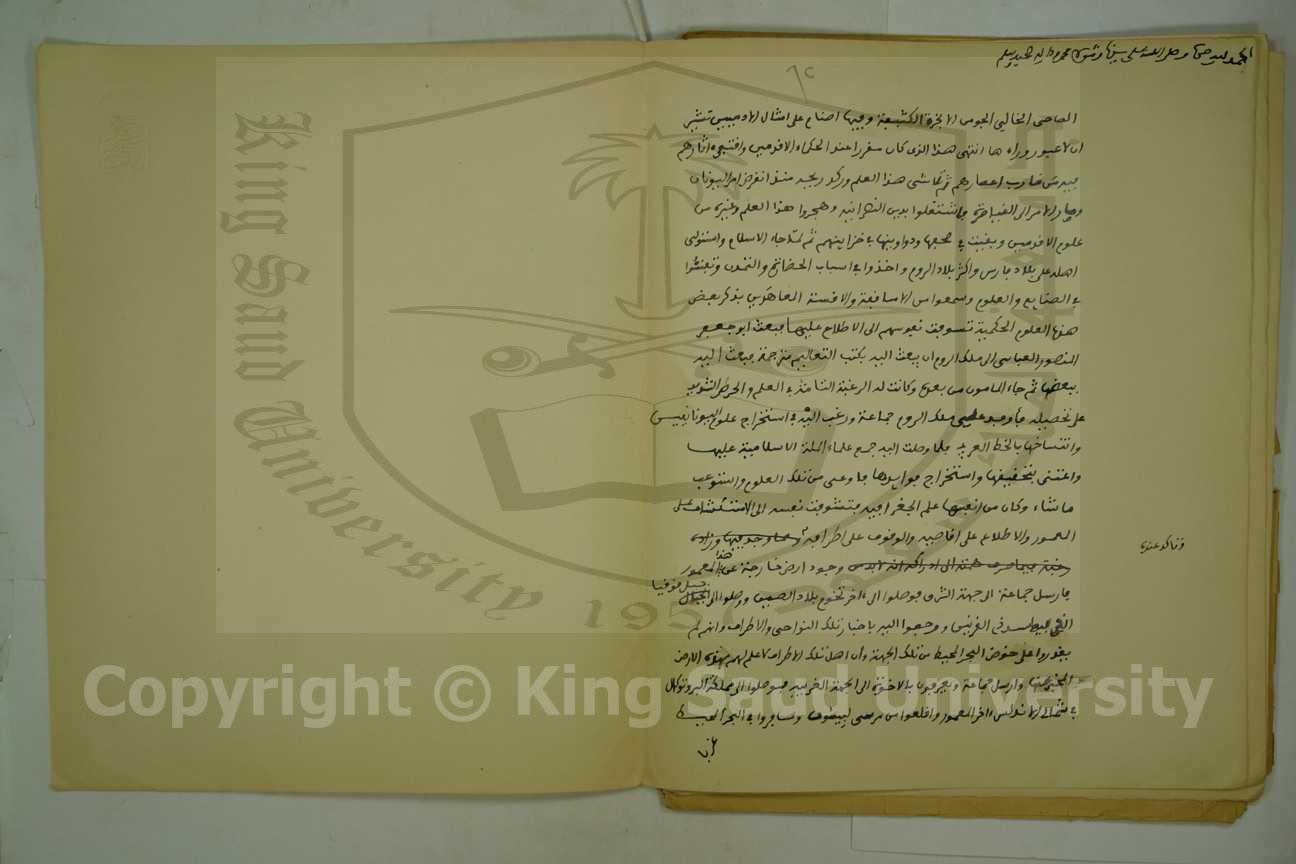 الحمد لله وحده وصلى الله على سيدنا ومولانا محمد وآله وصحبه وسلم
الكثيفة وفيها اصنام على امثال الادميين تشير
ان لا عبور وراءها انتهى هذا الذى كان مقررا عند الحكماء الاقدمين واقتفى اثارهم
فيه من قارب اعصارهم ثم تلاشى هذا العلم وركد ريحه منذ انقرض امر اليونان
وصار الامر الى القياصرة واشتغلوا بدين النصرانية وهجروا هذا العلم وغيره من
علوم الاقدمين وبقيت في صحفها ودواوينها في خزاينهم ثم لما جاء الاسلام واستولى
اهله على بلاد فارس واكثر بلاد الروم واخذوا في اسباب الحضارة والتمدن وتفننوا
في الصنايع والعلوم وسمعوا من الاساقفة والاقسة المعاهدين بذكر بعض
هذه العلوم الحكمية تشوقت نفوسهم الى الاطلاع عليها فبعث ابو جعفر
المنصور العباسى الى ملك الروم ان يبعث اليه بكتب التعاليم مترجمة فبعث اليه
ببعضها ثم جاء المامون من بعده وكانت له الرغبة التامة في العلم والحرص الشديد
على تحصيله فاوفد على ملك الروم جماعة ورغب اليه في استخراج علوم اليونانيين
وانتساخها بالخط العربي فلما وصلت اليه جمع علماء الملة الاسلامية عليها
واعتنى بتحقيقها واستخراج فوايدها فاوعى من تلك العلوم واستوعب
ما شاء وكان من انفسها علم الجغرافية فتشوقت نفسه الى الاستكشاف على
المعمور والاطلاع على اقاصيه والوقوف على اطرافه وما وجد فيها وزاده
وتاكد عنده
وجود ارض خارجة عن هذا المعمور
فارسل جماعة الى جهة الشرق فوصلوا الى ءاخر تخوم بلاد الصين ووصلوا الى الجبال
جبل قوفيا
ورجعوا اليه باخبار تلك النواحى والاطراف وانهم لم
يقدروا على خوض البحر المحيط من تلك الجهة وان اهل تلك الاطراف لا علم لهم بهذه الارض
وارسل جماعة يعرفون بالاخوة الى الجهة الغربية فوصلوا الى مملكة البرتوكال
في شمالى الاندلس ءاخر المعمور واقلعوا من مرسى وسافروا في البحر المحيط